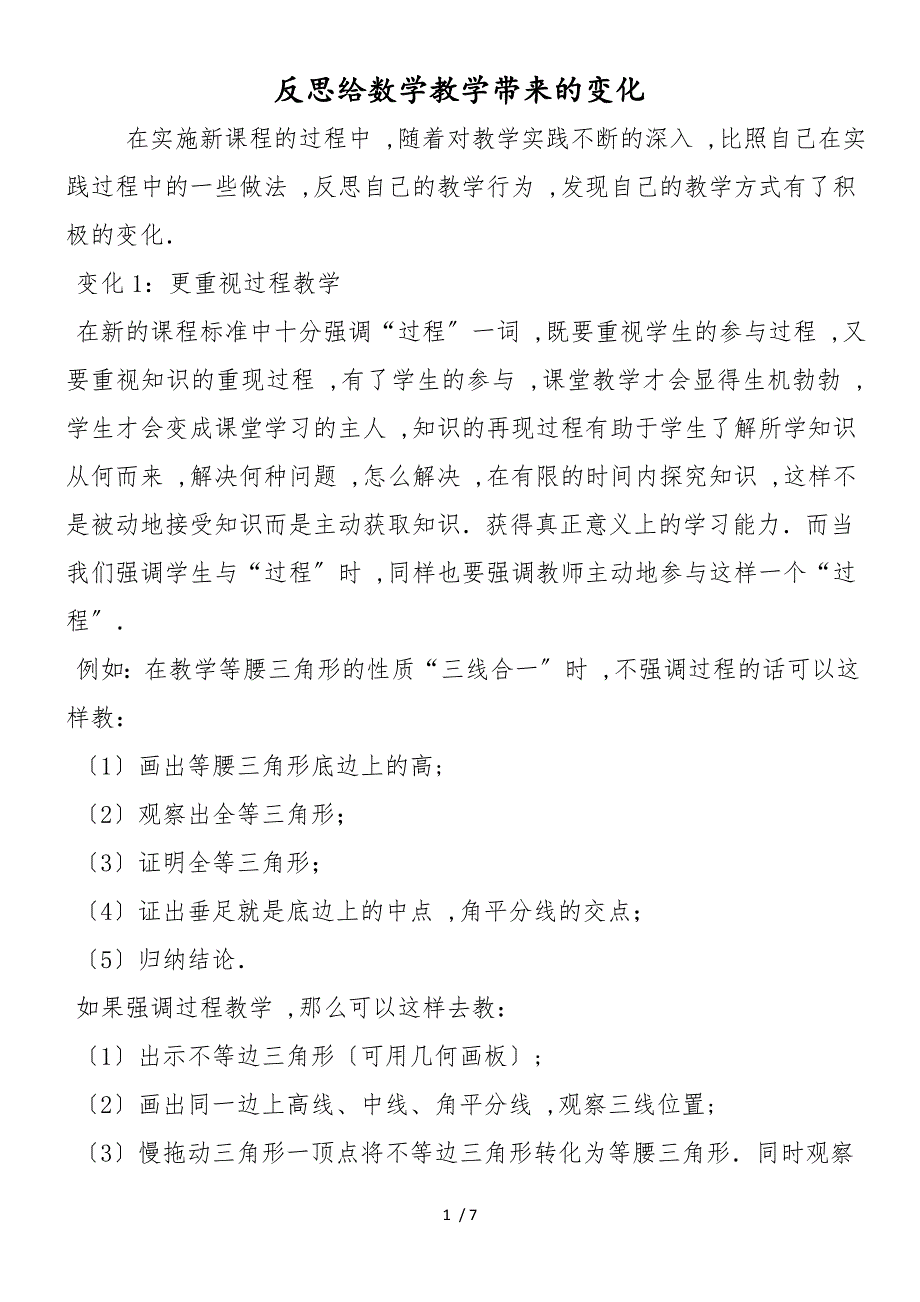 反思给数学教学带来的变化
在实施新课程的过程中 ,随着对教学实践不断的深入 ,比照自己在实
践过程中的一些做法 ,反思自己的教学行为 ,发现自己的教学方式有了积
极的变化.
变化1：更重视过程教学
在新的课程标准中十分强调“过程〞一词 ,既要重视学生的参与过程 ,又
要重视知识的重现过程 ,有了学生的参与 ,课堂教学才会显得生机勃勃 ,
学生才会变成课堂学习的主人 ,知识的再现过程有助于学生了解所学知识
从何而来 ,解决何种问题 ,怎么解决 ,在有限的时间内探究知识 ,这样不
是被动地接受知识而是主动获取知识．获得真正意义上的学习能力．而当
我们强调学生与“过程〞时 ,同样也要强调教师主动地参与这样一个“过
程〞.
例如：在教学等腰三角形的性质“三线合一〞时 ,不强调过程的话可以这
样教：
〔1〕画出等腰三角形底边上的高；
〔2〕观察出全等三角形；
〔3〕证明全等三角形；
〔4〕证出垂足就是底边上的中点 ,角平分线的交点；
〔5〕归纳结论．
如果强调过程教学 ,那么可以这样去教：
〔1〕出示不等边三角形〔可用几何画板〕；
〔2〕画出同一边上高线、中线、角平分线 ,观察三线位置；
〔3〕慢拖动三角形一顶点将不等边三角形转化为等腰三角形．同时观察
1 / 7